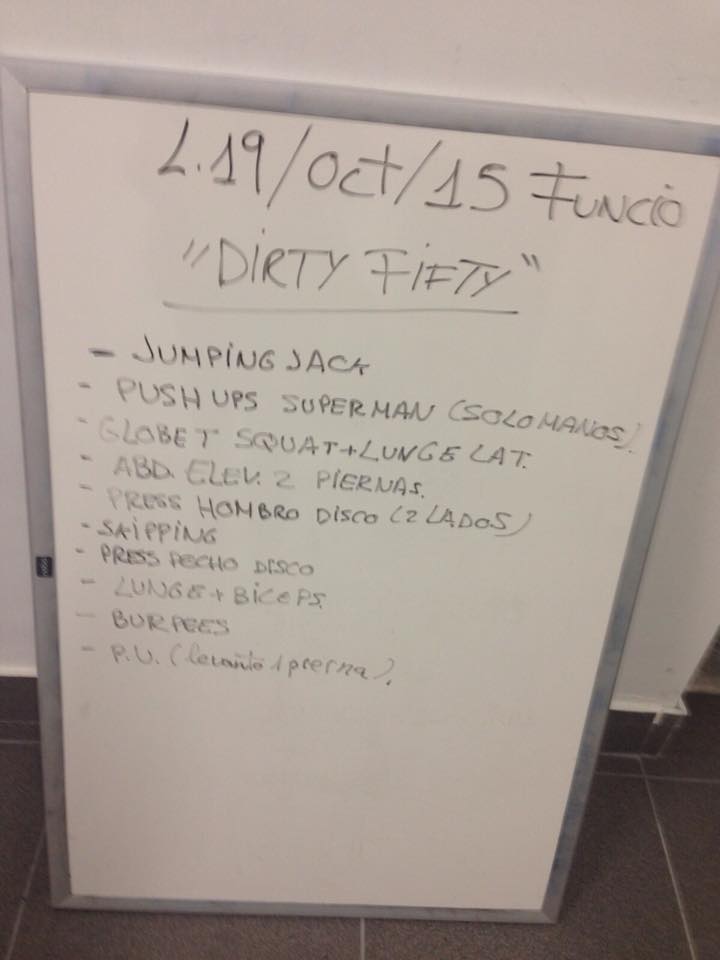 L.19/Oct/15 FUNCIO
"DIRTY FIFTY"
- JUMPING JACK
- PUSH UPS SUPERMAN (SOLO MANOS).
- GLOBET SQUAT+LUNGE LAT.
- ABD. ELEV. 2 PIERNAS.
- PRESS HOMBRO DISCO (2 LADOS)
- SKIPPING
- PRESS PECHO DISCO
- LUNGE+BICEPS.
- BURPEES
- P.U. (levanto 1 pierna).